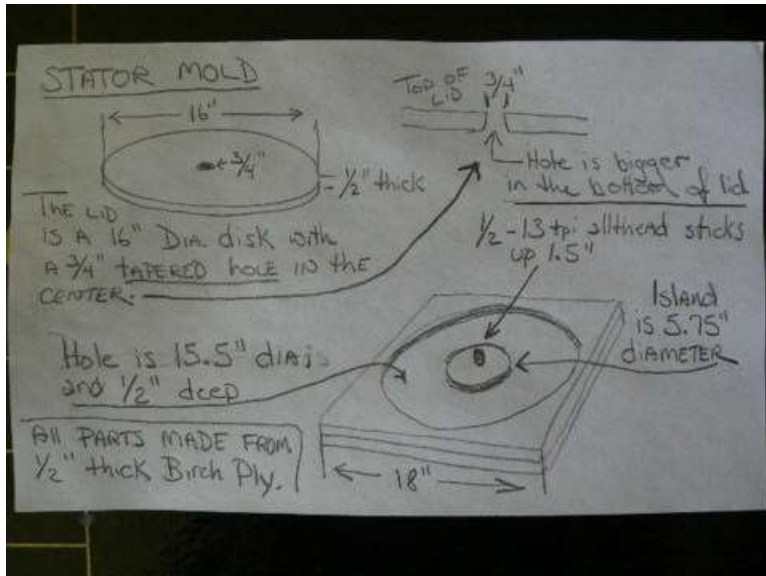 STATOR MOLD
16"
3/4"
1/2" thick
THE LID
IS A 16" DIA. disk with
A 3/4" TAPERED HOLE IN THE
CENTER.
TOP OF
LID
3/4"
Hole is bigger
in the bottom of lid
1/2 - 13 tpi allthead sticks
up 1.5"
Island
is 5.75"
diAMETER
Hole is 15.5" dia
and 1/2" deep
All PARTS MADE FROM
1/2" thick Birch Ply.
18"